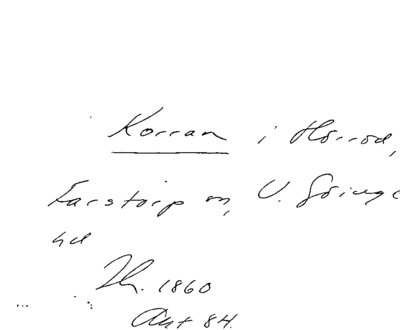 Korran i Hörröd,
Farstorp sn, V. Göinge
hd
Th. 1860
Ant 84.